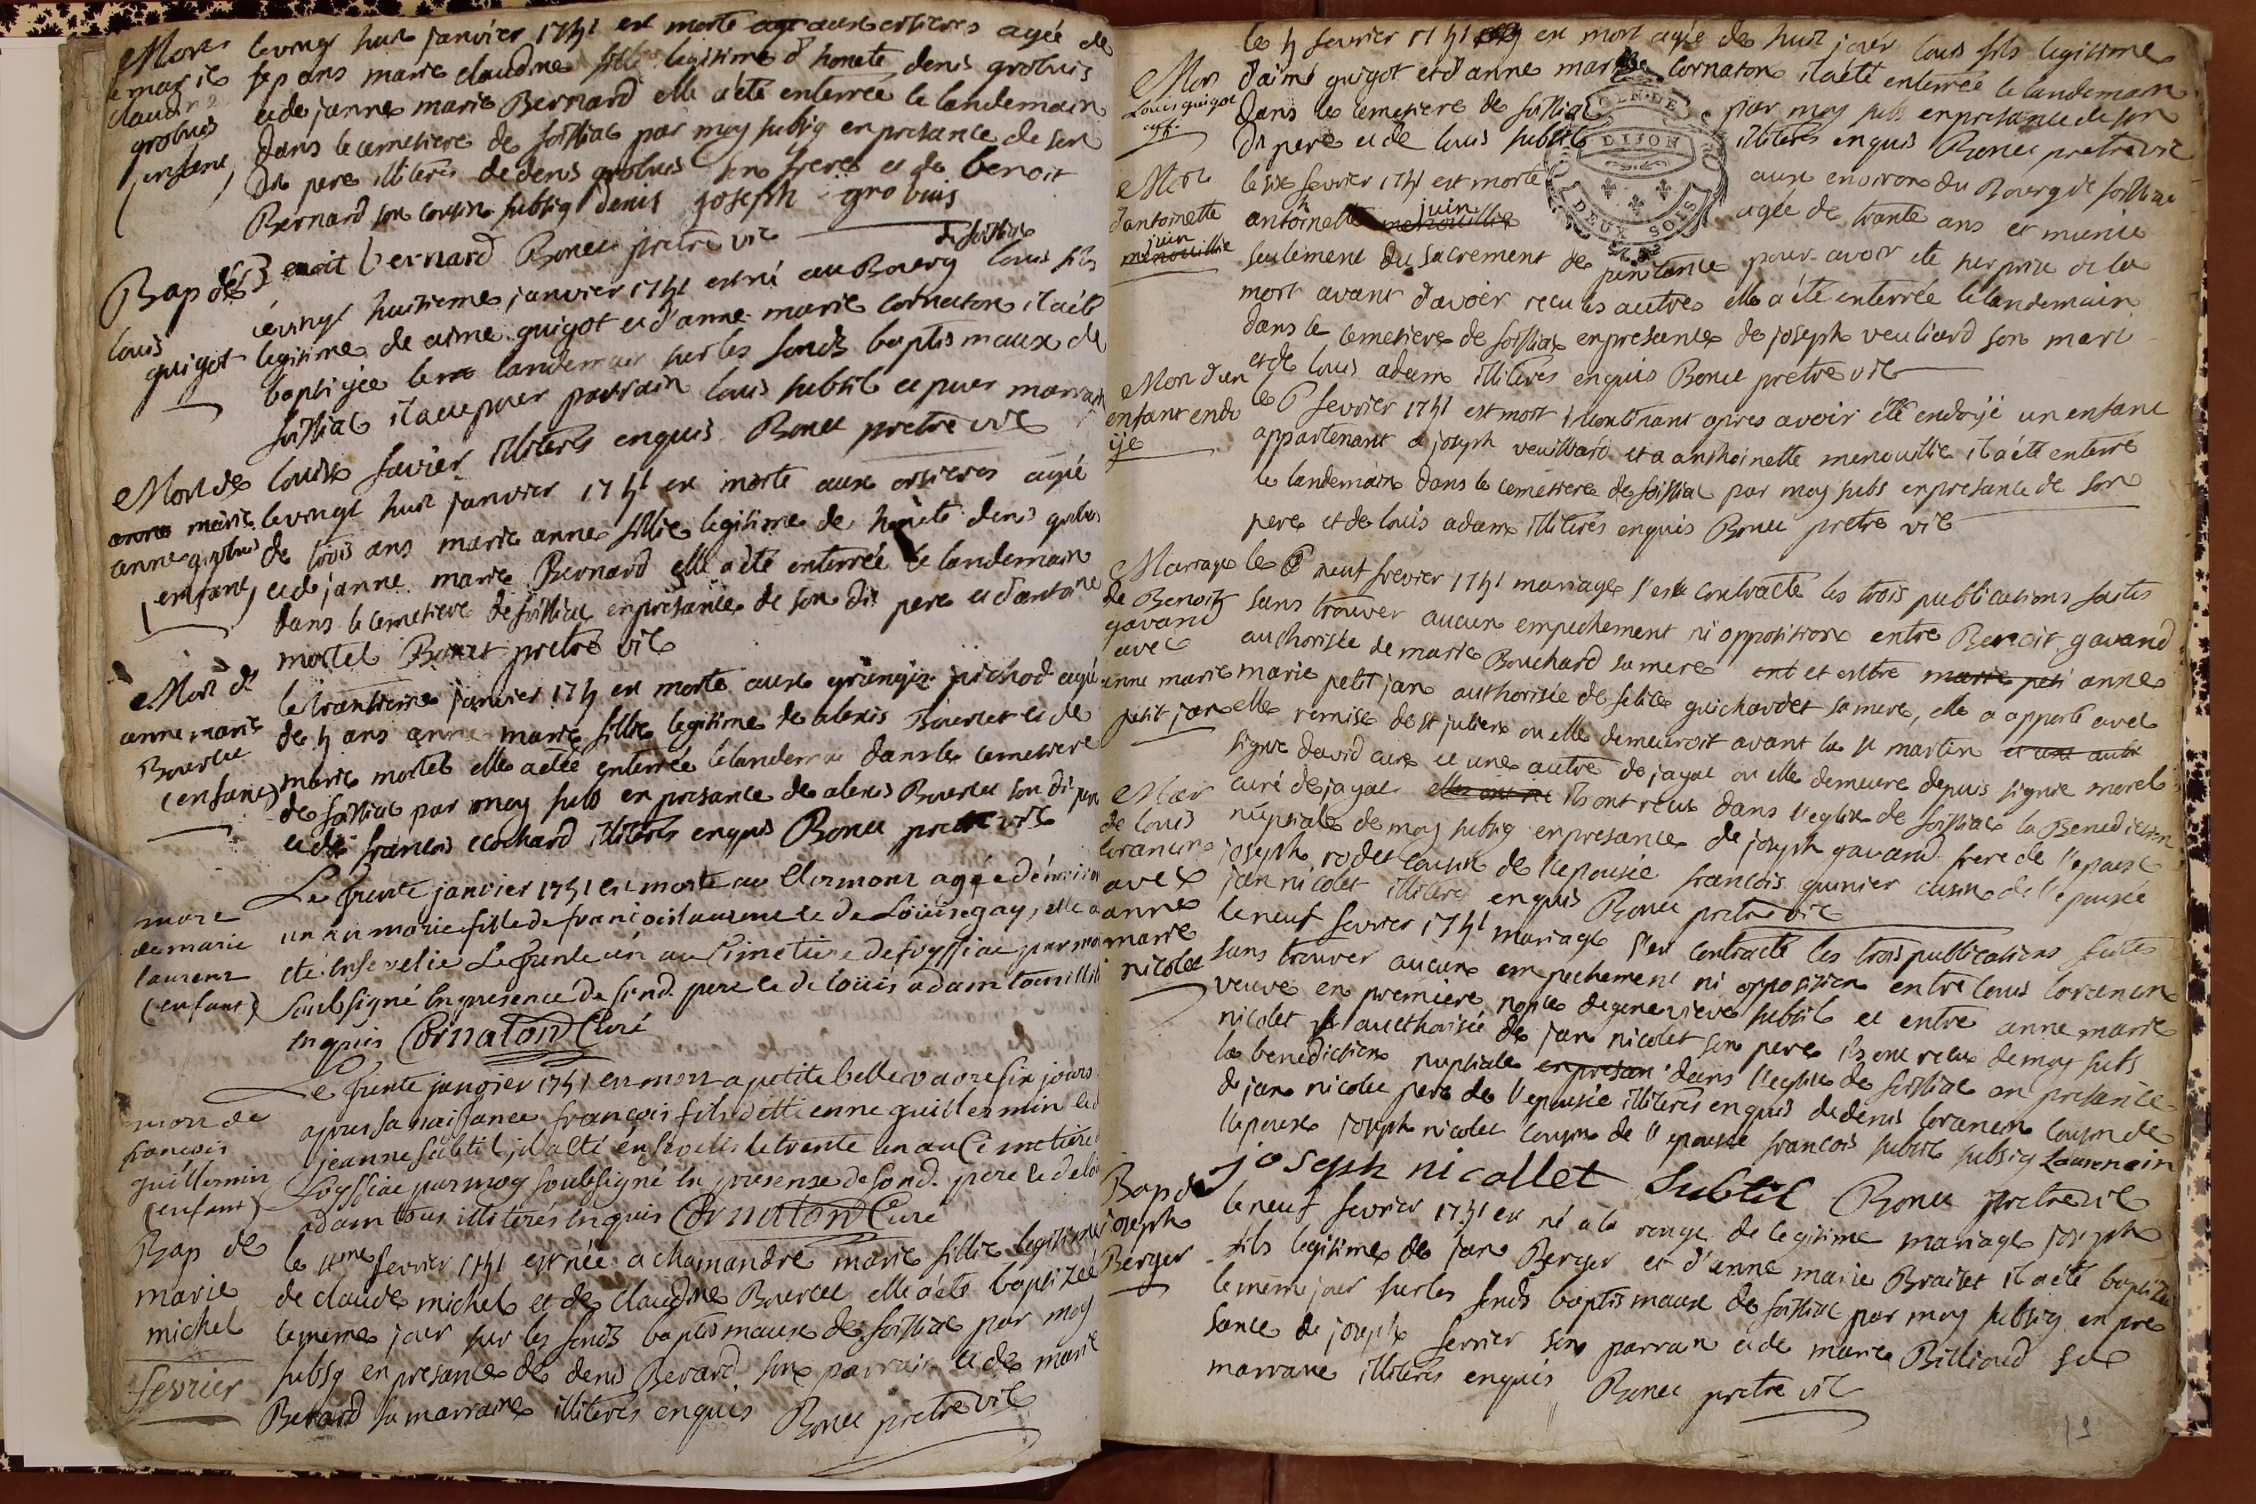 Mort
de marie
claudine
grobuis
(enfant)
le vingt huit janvier 1741 est morte aux ortieres agée de
sept ans marie claudine fillie legitime d'honete denis grobuis
et de janne marie Bernard elle a été enterrée le landemain
dans le cemetiere de foissiac par moy subsig en presance de son
dit pere illiteres de denis grobuis son frere et de benoit
Bernard son cousin subsig denis joseph grobuis
benoit bernard Bonet pretre vic
Bap de
louis
guigot
le vingt huitieme janvier 1741 est né au Bourg de foissiac louis fils
legitime de aime guigot et d'anne marie cornaton il a été
baptizée le landemain sur les fonds baptismaux de
foissiac il a eu pour parrain louis subtil et pour marraine
louise favier illiteres enquis Bonet pretre vic
Mort de
marie
anne grobuis
(enfant)
le vingt huit janvier 1741 est morte aux ortieres agée
de trois ans marie anne fillie legitime de honete denis grobuis
et de janne marie Bernard elle a été enterrée le landemain
dans le cemetiere de foissiac en presance de son dit pere et d'antoine
mortel Bonet pretre vic
Mort de
anne marie
Bourcet
(enfant)
le trantieme janvier 174 est morte aux granges pichod agée
de 4 ans anne marie fillie legitime de alexis Bourcet et de
marie mortel elle a été enterrée le landemain dans le cemetiere
de foissiac par moy subs en presance de alexis Bourcet son dit pere
et de francois cochard illiteres enquis Bonet pretre vic
mort
de marie
laurent
(enfant)
Le trente janvier 1741 est morte au Clermont agée d'environ
un an marie fille de francois laurent et de Louise gay, elle a
eté Ensevelie Le trente un au Cimetiere de foyssiac par moy
soubsigné En presence de son d. pere et de loüis adam tous illit
Enquis Cornaton Curé
mort de
francois
guillermin
(enfant)
Le trente janvier 1741 est mort a petite belle vavre six jours
apres sa naissance francois fils d'ettienne guillermin et d
jeanne subtil, il a été enseveli le trente un au Cimetiere
foyssiac par moy soubsigné En presence de son d. pere et de loü
adam tous illiterés Enquis Cornaton Curé
Bap de
marie
michel
fevrier
le 4me fevrier 1741 est née a chamandré marie fillie legitime
de claude michel et de claudine Bourcet elle a été baptizée
le meme jour sur les fonds baptismaux de foissiac par moy
subsg en presance de denis Berard son parrain et de marie
Berard sa marraine illiteres enquis Bonet pretre vic
Mort
Louis guigot
enf.
le 4 fevrier 1741 est mort agée de huit jours louis fils legitime
d'aimé guigot et d'anne marie cornaton il a été enterrée le landemain
dans le cemetiere de foissiac par moy subs en presance de son
dit pere et de louis subtil illiteres enquis Bonet pretre vic
GEN. DE
DIJON
DEUX SOLS
Mort
d'antoinette
juin
menouillie
le six fevrier 1741 est morte aux environs du Bourg de foissiac
antoinette menouillie juin agée de trante ans et munie
seulement du sacrement de penitance pour avoir ete surprise de la
mort avant d'avoir recu les autres elle a été enterrée le landemain
dans le cemetiere de foissiac en presance de joseph veuliard son mari
et de louis adam illiteres enquis Bonet pretre vic
Mort d'un
enfant ondo
ijé
le 6 fevrier 1741 est mort incontinant apres avoir été endoijé un enfant
appartenant a joseph veuilliard et a anthoinette menouillie il a été enterré
le landemain dans le cemetiere de foissiac par moy subs en presance de son
pere et de louis adam illiteres enquis Bonet pretre vic
Mariage
de Benoit
gavand
avec
anne marie
petit jan
le neuf fevrier 1741 mariage s'est contracté les trois publications faites
sans trouver aucun empechement ni opposition entre Benoit gavand
authorisée de marie Bouchard sa mere ent et entre marie peti anne
marie petit jan authorisée de felice guichardet sa mere, elle a apporté avec
elle remise de st julien ou elle demeuroit avant la st martin et une autre
signe david cure et une autre de jayat ou elle demeure depuis signe morel
curé de jayat elles ont re ils ont recue dans l'eglise de foissiac la Benediction
nuptiale de moy subsig en presance de joseph gavand frere de l'epoux
joseph rodet cousin de l'epousée francois guinier cousin de l'epousée
jan nicolet illiteres enquis Bonet pretre vic
Mar
de louis
lorancin
avec
anne
marie
nicolet
le neuf fevrier 1741 mariage s'est contracté les trois publications faites
sans trouver aucun empechement ni opposition entre louis lorancin
veuve en premiere nopce de genevieve subtil et entre anne marie
nicolet authorisée de jan nicolet son pere ils ont recue de moy subs
la benediction nuptiale en presan dans l'eglise de foissiac en presance
de jan nicolet pere de l'epousée illiteres enquis de denis lorancin cousin de
l'epoux joseph nicolet cousin de l'epousée francois subtil subsig Laurencin
joseph nicollet Subtil Bonet pretre vic
Bap de
joseph
Berger
le neuf fevrier 1741 est né a la ronge de legitime mariage joseph
fils legitime de jan Berger et d'anne marie Braitet il a été baptizée
le meme jour sur les fonds baptismaux de foissiac par moy subsig en pre
sance de joseph ferrier son parran et de marie Billioud sa
marrane illiteres enquis Bonet pretre vic
19